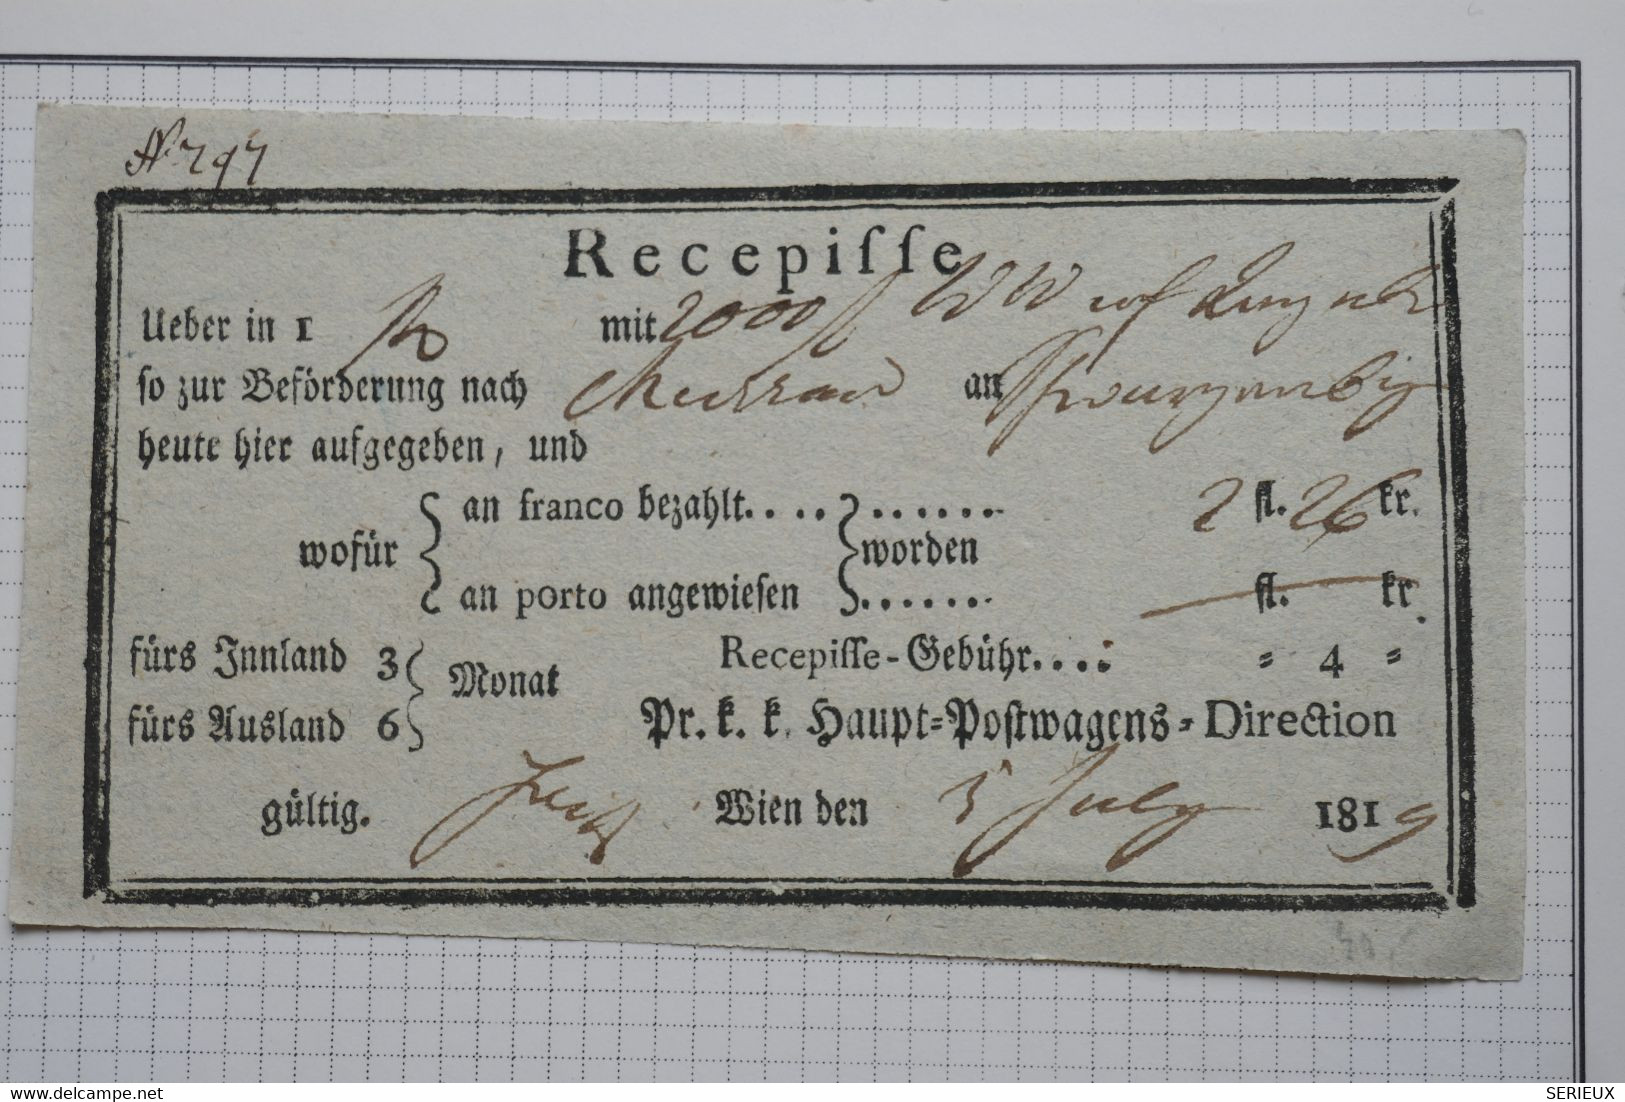 N 797
Recepiſſe
Ueber in 1 mit 2000 f WW
ſo zur Beförderung nach Murrau an Schwarzenberg
heute hier aufgegeben, und
wofür { an franco bezahlt. . . . } . . . . . . worden 2 fl. 26 kr.
{ an porto angewieſen } . . . . . . fl. kr.
fürs Innland 3 } Monat Recepiſſe-Gebühr. . . . = 4 =
fürs Ausland 6 } Pr. k. k. Haupt=Poſtwagens=Direction
gültig. Wien den 5 July 1819
DELCAMPE.NET
SERIEUX